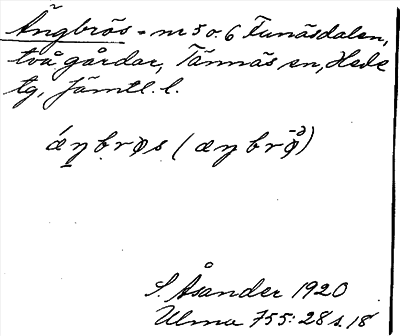 Ängbrös - nr 5 o. 6 Funäsdalen,
två gårdar, Tännäs sn, Hede
tg, Jämtl. l.
ǽŋbrøs (æŋbrø̄)
S. Åsander 1920
Ulma 755:28 s. 18